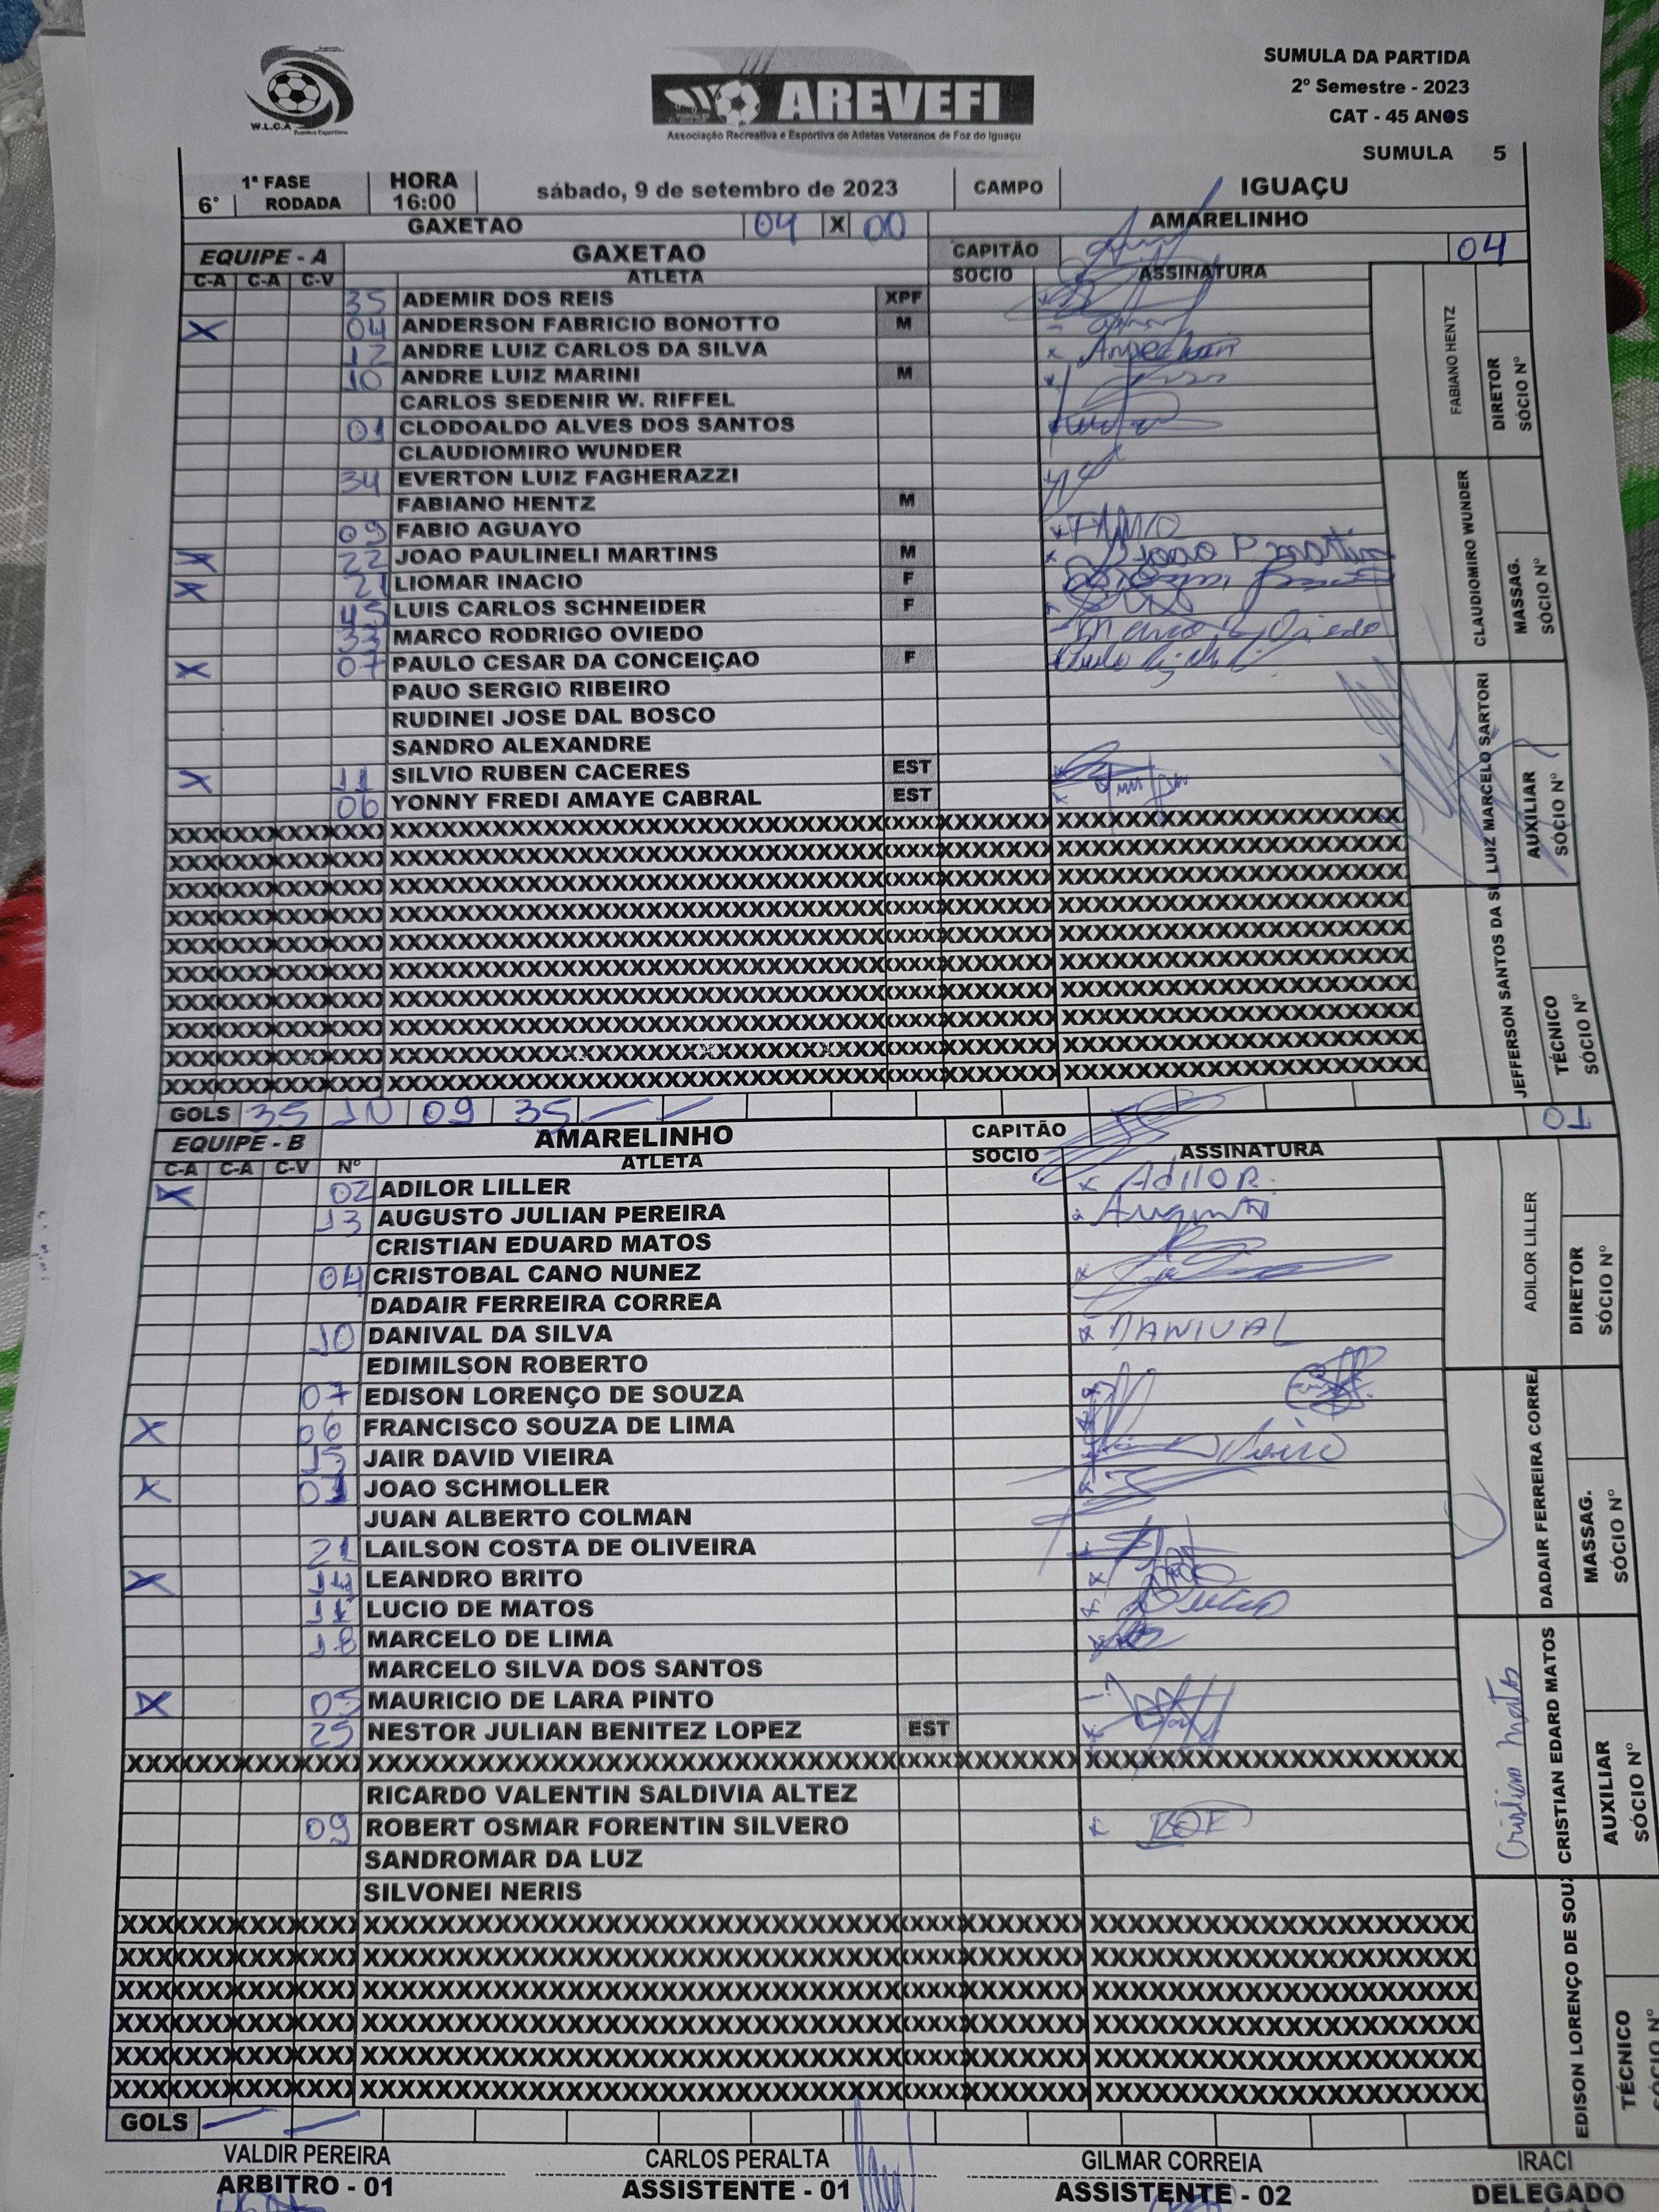 SUMULA DA PARTIDA
2º Semestre - 2023
CAT - 45 ANOS
SUMULA 5
W.L.C.A
AREVEFI
Associação Recreativa e Esportiva de Atletas Veteranos de Foz do Iguaçu
1ª FASE HORA sábado, 9 de setembro de 2023 CAMPO IGUAÇU
6° RODADA 16:00
GAXETAO 04 X 00 AMARELINHO
EQUIPE - A GAXETAO CAPITÃO 04
C-A C-A C-V ATLETA SOCIO ASSINATURA
35 ADEMIR DOS REIS XPF
X 04 ANDERSON FABRICIO BONOTTO M
12 ANDRE LUIZ CARLOS DA SILVA
10 ANDRE LUIZ MARINI M
CARLOS SEDENIR W. RIFFEL
01 CLODOALDO ALVES DOS SANTOS
CLAUDIOMIRO WUNDER
34 EVERTON LUIZ FAGHERAZZI
FABIANO HENTZ M
09 FABIO AGUAYO
X 22 JOAO PAULINELI MARTINS M Joao P martin
X 21 LIOMAR INACIO F
45 LUIS CARLOS SCHNEIDER F
33 MARCO RODRIGO OVIEDO Marco R Oviedo
X 07 PAULO CESAR DA CONCEIÇAO F
PAUO SERGIO RIBEIRO
RUDINEI JOSE DAL BOSCO
SANDRO ALEXANDRE
X 11 SILVIO RUBEN CACERES EST
06 YONNY FREDI AMAYE CABRAL EST
FABIANO HENTZ
DIRETOR
SÓCIO Nº
CLAUDIOMIRO WUNDER
MASSAG.
SÓCIO Nº
LUIZ MARCELO SARTORI
AUXILIAR
SÓCIO Nº
JEFFERSON SANTOS DA SI
TÉCNICO
SÓCIO Nº
GOLS 35 10 09 35
EQUIPE - B AMARELINHO CAPITÃO 01
C-A C-A C-V Nº ATLETA SOCIO ASSINATURA
X 02 ADILOR LILLER x AdiloR
13 AUGUSTO JULIAN PEREIRA Augusto
CRISTIAN EDUARD MATOS
04 CRISTOBAL CANO NUNEZ
DADAIR FERREIRA CORREA
10 DANIVAL DA SILVA x DANIVAL
EDIMILSON ROBERTO
07 EDISON LORENÇO DE SOUZA
X 06 FRANCISCO SOUZA DE LIMA
15 JAIR DAVID VIEIRA
X 01 JOAO SCHMOLLER
JUAN ALBERTO COLMAN
21 LAILSON COSTA DE OLIVEIRA
X 14 LEANDRO BRITO
11 LUCIO DE MATOS
18 MARCELO DE LIMA
MARCELO SILVA DOS SANTOS
X 05 MAURICIO DE LARA PINTO
25 NESTOR JULIAN BENITEZ LOPEZ EST
RICARDO VALENTIN SALDIVIA ALTEZ
09 ROBERT OSMAR FORENTIN SILVERO
SANDROMAR DA LUZ
SILVONEI NERIS
ADILOR LILLER
DIRETOR
SÓCIO Nº
DADAIR FERREIRA CORREA
MASSAG.
SÓCIO Nº
Cristian Matos
CRISTIAN EDARD MATOS
AUXILIAR
SÓCIO Nº
EDISON LORENÇO DE SOUZ
TÉCNICO
SÓCIO Nº
GOLS
VALDIR PEREIRA CARLOS PERALTA GILMAR CORREIA IRACI
ARBITRO - 01 ASSISTENTE - 01 ASSISTENTE - 02 DELEGADO